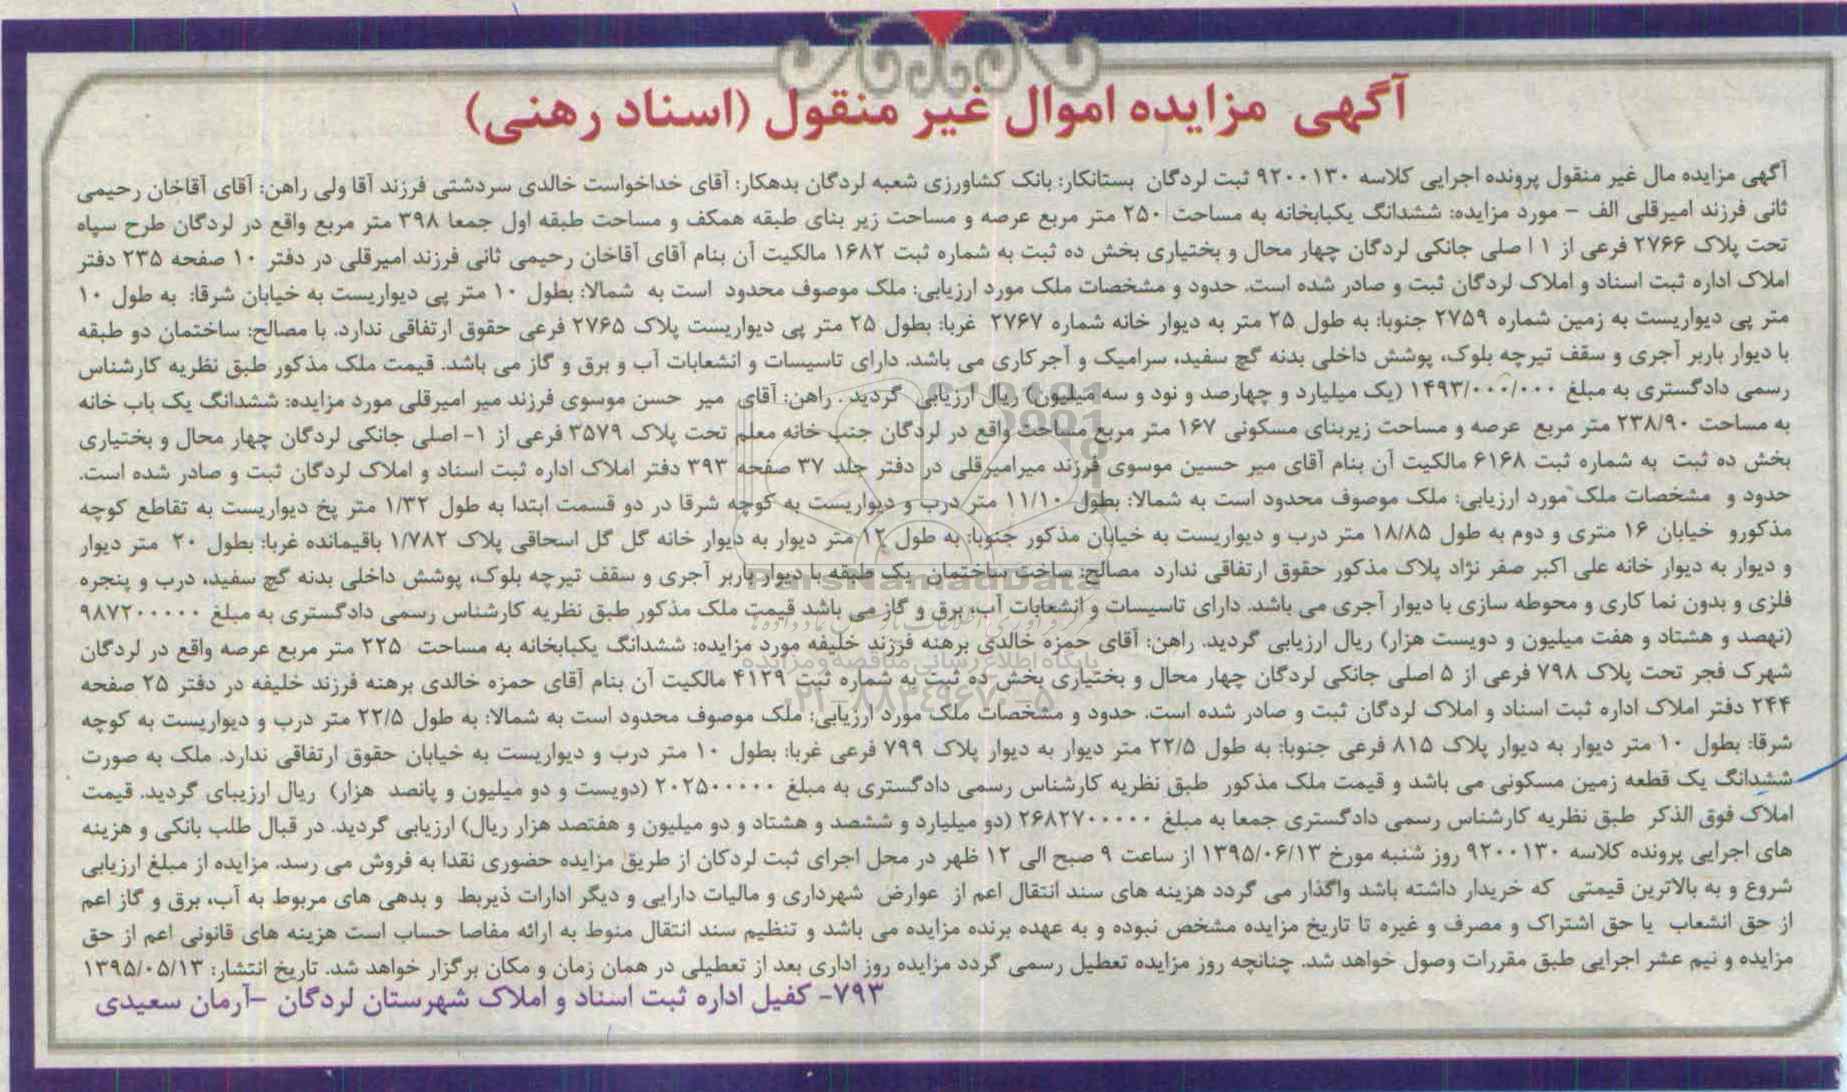 آگهی مزایده اموال غیر منقول (اسناد رهنی)
آگهی مزایده مال غیر منقول پرونده اجرایی کلاسه ۹۲۰۰۱۳۰ ثبت لردگان بستانکار: بانک کشاورزی شعبه لردگان بدهکار: آقای خداخواست خالدی سردشتی فرزند آقا ولی راهن: آقای آقاخان رحیمی
ثانی فرزند امیرقلی الف - مورد مزایده: ششدانگ یکبابخانه به مساحت ۲۵۰ متر مربع عرصه و مساحت زیر بنای طبقه همکف و مساحت طبقه اول جمعا ۳۹۸ متر مربع واقع در لردگان طرح سپاه
تحت پلاک ۲۷۶۶ فرعی از ۱ ا صلی جانکی لردگان چهار محال و بختیاری بخش ده ثبت به شماره ثبت ۱۶۸۲ مالکیت آن بنام آقای آقاخان رحیمی ثانی فرزند امیرقلی در دفتر ۱۰ صفحه ۲۳۵ دفتر
املاک اداره ثبت اسناد و املاک لردگان ثبت و صادر شده است. حدود و مشخصات ملک مورد ارزیابی: ملک موصوف محدود است به شمالا: بطول ۱۰ متر پی دیواریست به خیابان شرقا: به طول ۱۰
متر پی دیواریست به زمین شماره ۲۷۵۹ جنوبا: به طول ۲۵ متر به دیوار خانه شماره ۲۷۶۷ غربا: بطول ۲۵ متر پی دیواریست پلاک ۲۷۶۵ فرعی حقوق ارتفاقی ندارد. با مصالح: ساختمان دو طبقه
با دیوار باربر آجری و سقف تیرچه بلوک، پوشش داخلی بدنه گچ سفید، سرامیک و آجرکاری می باشد. دارای تاسیسات و انشعابات آب و برق و گاز می باشد. قیمت ملک مذکور طبق نظریه کارشناس
رسمی دادگستری به مبلغ ۱۴۹۳/۰۰۰/۰۰۰ (یک میلیارد و چهارصد و نود و سه میلیون) ریال ارزیابی گردید. راهن: آقای میر حسن موسوی فرزند میر امیرقلی مورد مزایده: ششدانگ یک باب خانه
به مساحت ۲۳۸/۹۰ متر مربع عرصه و مساحت زیربنای مسکونی ۱۶۷ متر مربع مساحت واقع در لردگان جنب خانه معلم تحت پلاک ۳۵۷۹ فرعی از ۱- اصلی جانکی لردگان چهار محال و بختیاری
بخش ده ثبت به شماره ثبت ۶۱۶۸ مالکیت آن بنام آقای میر حسین موسوی فرزند میرامیرقلی در دفتر جلد ۳۷ صفحه ۳۹۳ دفتر املاک اداره ثبت اسناد و املاک لردگان ثبت و صادر شده است.
حدود و مشخصات ملک مورد ارزیابی: ملک موصوف محدود است به شمالا: بطول ۱۱/۱۰ متر درب و دیواریست به کوچه شرقا در دو قسمت ابتدا به طول ۱/۳۲ متر پخ دیواریست به تقاطع کوچه
مذکورو خیابان ۱۶ متری و دوم به طول ۱۸/۸۵ متر درب و دیواریست به خیابان مذکور جنوبا: به طول ۱۲ متر دیوار به دیوار خانه گل گل اسحاقی پلاک ۱/۷۸۲ باقیمانده غربا: بطول ۲۰ متر دیوار
و دیوار به دیوار خانه علی اکبر صفر نژاد پلاک مذکور حقوق ارتفاقی ندارد مصالح: ساخت ساختمان یک طبقه با دیوار باربر آجری و سقف تیرچه بلوک، پوشش داخلی بدنه گچ سفید، درب و پنجره
فلزی و بدون نما کاری و محوطه سازی با دیوار آجری می باشد. دارای تاسیسات و انشعابات آب، برق و گاز می باشد قیمت ملک مذکور طبق نظریه کارشناس رسمی دادگستری به مبلغ ۹۸۷۲۰۰۰۰۰
(نهصد و هشتاد و هفت میلیون و دویست هزار) ریال ارزیابی گردید. راهن: آقای حمزه خالدی برهنه فرزند خلیفه مورد مزایده: ششدانگ یکبابخانه به مساحت ۲۲۵ متر مربع عرصه واقع در لردگان
شهرک فجر تحت پلاک ۷۹۸ فرعی از ۵ اصلی جانکی لردگان چهار محال و بختیاری بخش ده ثبت به شماره ثبت ۴۱۲۹ مالکیت آن بنام آقای حمزه خالدی برهنه فرزند خلیفه در دفتر ۲۵ صفحه
۲۴۴ دفتر املاک اداره ثبت اسناد و املاک لردگان ثبت و صادر شده است. حدود و مشخصات ملک مورد ارزیابی: ملک موصوف محدود است به شمالا: به طول ۲۲/۵ متر درب و دیواریست به کوچه
شرقا: بطول ۱۰ متر دیوار به دیوار پلاک ۸۱۵ فرعی جنوبا: به طول ۲۲/۵ متر دیوار به دیوار پلاک ۷۹۹ فرعی غربا: بطول ۱۰ متر درب و دیواریست به خیابان حقوق ارتفاقی ندارد. ملک به صورت
ششدانگ یک قطعه زمین مسکونی می باشد و قیمت ملک مذکور طبق نظریه کارشناس رسمی دادگستری به مبلغ ۲۰۲۵۰۰۰۰۰ (دویست و دو میلیون و پانصد هزار) ریال ارزیبای گردید. قیمت
املاک فوق الذکر طبق نظریه کارشناس رسمی دادگستری جمعا به مبلغ ۲۶۸۲۷۰۰۰۰۰ (دو میلیارد و ششصد و هشتاد و دو میلیون و هفتصد هزار ریال) ارزیابی گردید. در قبال طلب بانکی و هزینه
های اجرایی پرونده کلاسه ۹۲۰۰۱۳۰ روز شنبه مورخ ۱۳۹۵/۰۶/۱۳ از ساعت ۹ صبح الی ۱۲ ظهر در محل اجرای ثبت لردکان از طریق مزایده حضوری نقدا به فروش می رسد. مزایده از مبلغ ارزیابی
شروع و به بالاترین قیمتی که خریدار داشته باشد واگذار می گردد هزینه های سند انتقال اعم از عوارض شهرداری و مالیات دارایی و دیگر ادارات ذیربط و بدهی های مربوط به آب، برق و گاز اعم
از حق انشعاب یا حق اشتراک و مصرف و غیره تا تاریخ مزایده مشخص نبوده و به عهده برنده مزایده می باشد و تنظیم سند انتقال منوط به ارائه مفاصا حساب است هزینه های قانونی اعم از حق
مزایده و نیم عشر اجرایی طبق مقررات وصول خواهد شد. چنانچه روز مزایده تعطیل رسمی گردد مزایده روز اداری بعد از تعطیلی در همان زمان و مکان برگزار خواهد شد. تاریخ انتشار: ۱۳۹۵/۰۵/۱۳
۷۹۳- کفیل اداره ثبت اسناد و املاک شهرستان لردگان -آرمان سعیدی
ParsNamadData
پایگاه اطلاع رسانی مناقصه و مزایده
۰۲۱-۸۸۳۴۹۶۷۰-۵